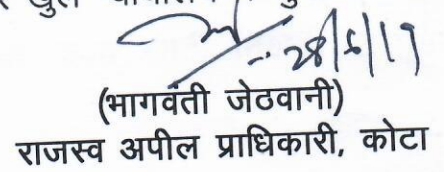 28/6/19
(भागवंती जेठवानी)
राजस्व अपील प्राधिकारी, कोटा